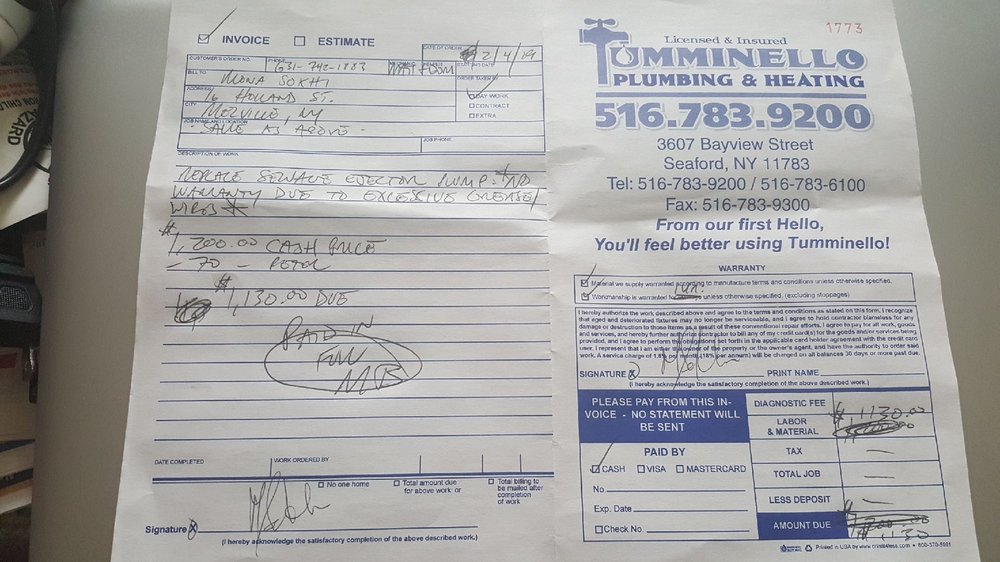 INVOICE ESTIMATE
DATE OF ORDER 2/4/19
CUSTOMER'S ORDER NO. PHONE 631-742-1883
STARTING DATE
BILL TO MONA SOKHI
ORDER TAKEN BY
ADDRESS 16 HOLLAND ST.
DAY WORK
CITY MELVILLE, NY
CONTRACT
EXTRA
JOB NAME AND LOCATION -SAME AS ABOVE-
JOB PHONE
DESCRIPTION OF WORK
REPLACE SEWAGE EJECTOR PUMP. *NO
WARRANTY DUE TO EXCESSIVE GREASE/
WIPES *
$1,200.00 CASH PRICE
- 70 -
$1,130.00 DUE
PAID IN
FULL
MR
DATE COMPLETED WORK ORDERED BY
No one home
Total amount due for above work or
Total billing to be mailed after completion of work
Signature X
(I hereby acknowledge the satisfactory completion of the above described work.)
1773
Licensed & Insured
TUMMINELLO
PLUMBING & HEATING
516.783.9200
3607 Bayview Street
Seaford, NY 11783
Tel: 516-783-9200 / 516-783-6100
Fax: 516-783-9300
From our first Hello,
You'll feel better using Tumminello!
WARRANTY
Material we supply warranted according to manufacture terms and conditions unless otherwise specified.
Workmanship is warranted for 1 yr. unless otherwise specified. (excluding stoppages)
I hereby authorize the work described above and agree to the terms and conditions as stated on this form. I recognize
that aged and deteriorated fixtures may no longer be serviceable, and I agree to hold contractor blameless for any
damage or destruction to these items as a result of these conventional repair efforts. I agree to pay for all work, goods
and services, and hereby further authorize contractor to bill any of my credit card(s) for the goods and/or services being
provided, and I agree to perform the obligations set forth in the applicable card holder agreement with the credit card
user. I represent that I am either the owner of the property or the owner's agent, and have the authority to order said
work. A service charge of 1.5% per month (18% per annum) will be charged on all balances 30 days or more past due.
SIGNATURE X PRINT NAME
(I hereby acknowledge the satisfactory completion of the above described work.)
PLEASE PAY FROM THIS IN-
VOICE - NO STATEMENT WILL
BE SENT
PAID BY
CASH VISA MASTERCARD
No.
Exp. Date
Check No.
DIAGNOSTIC FEE
LABOR & MATERIAL $1130.00
TAX —
TOTAL JOB —
LESS DEPOSIT —
AMOUNT DUE 1130
Printed in USA